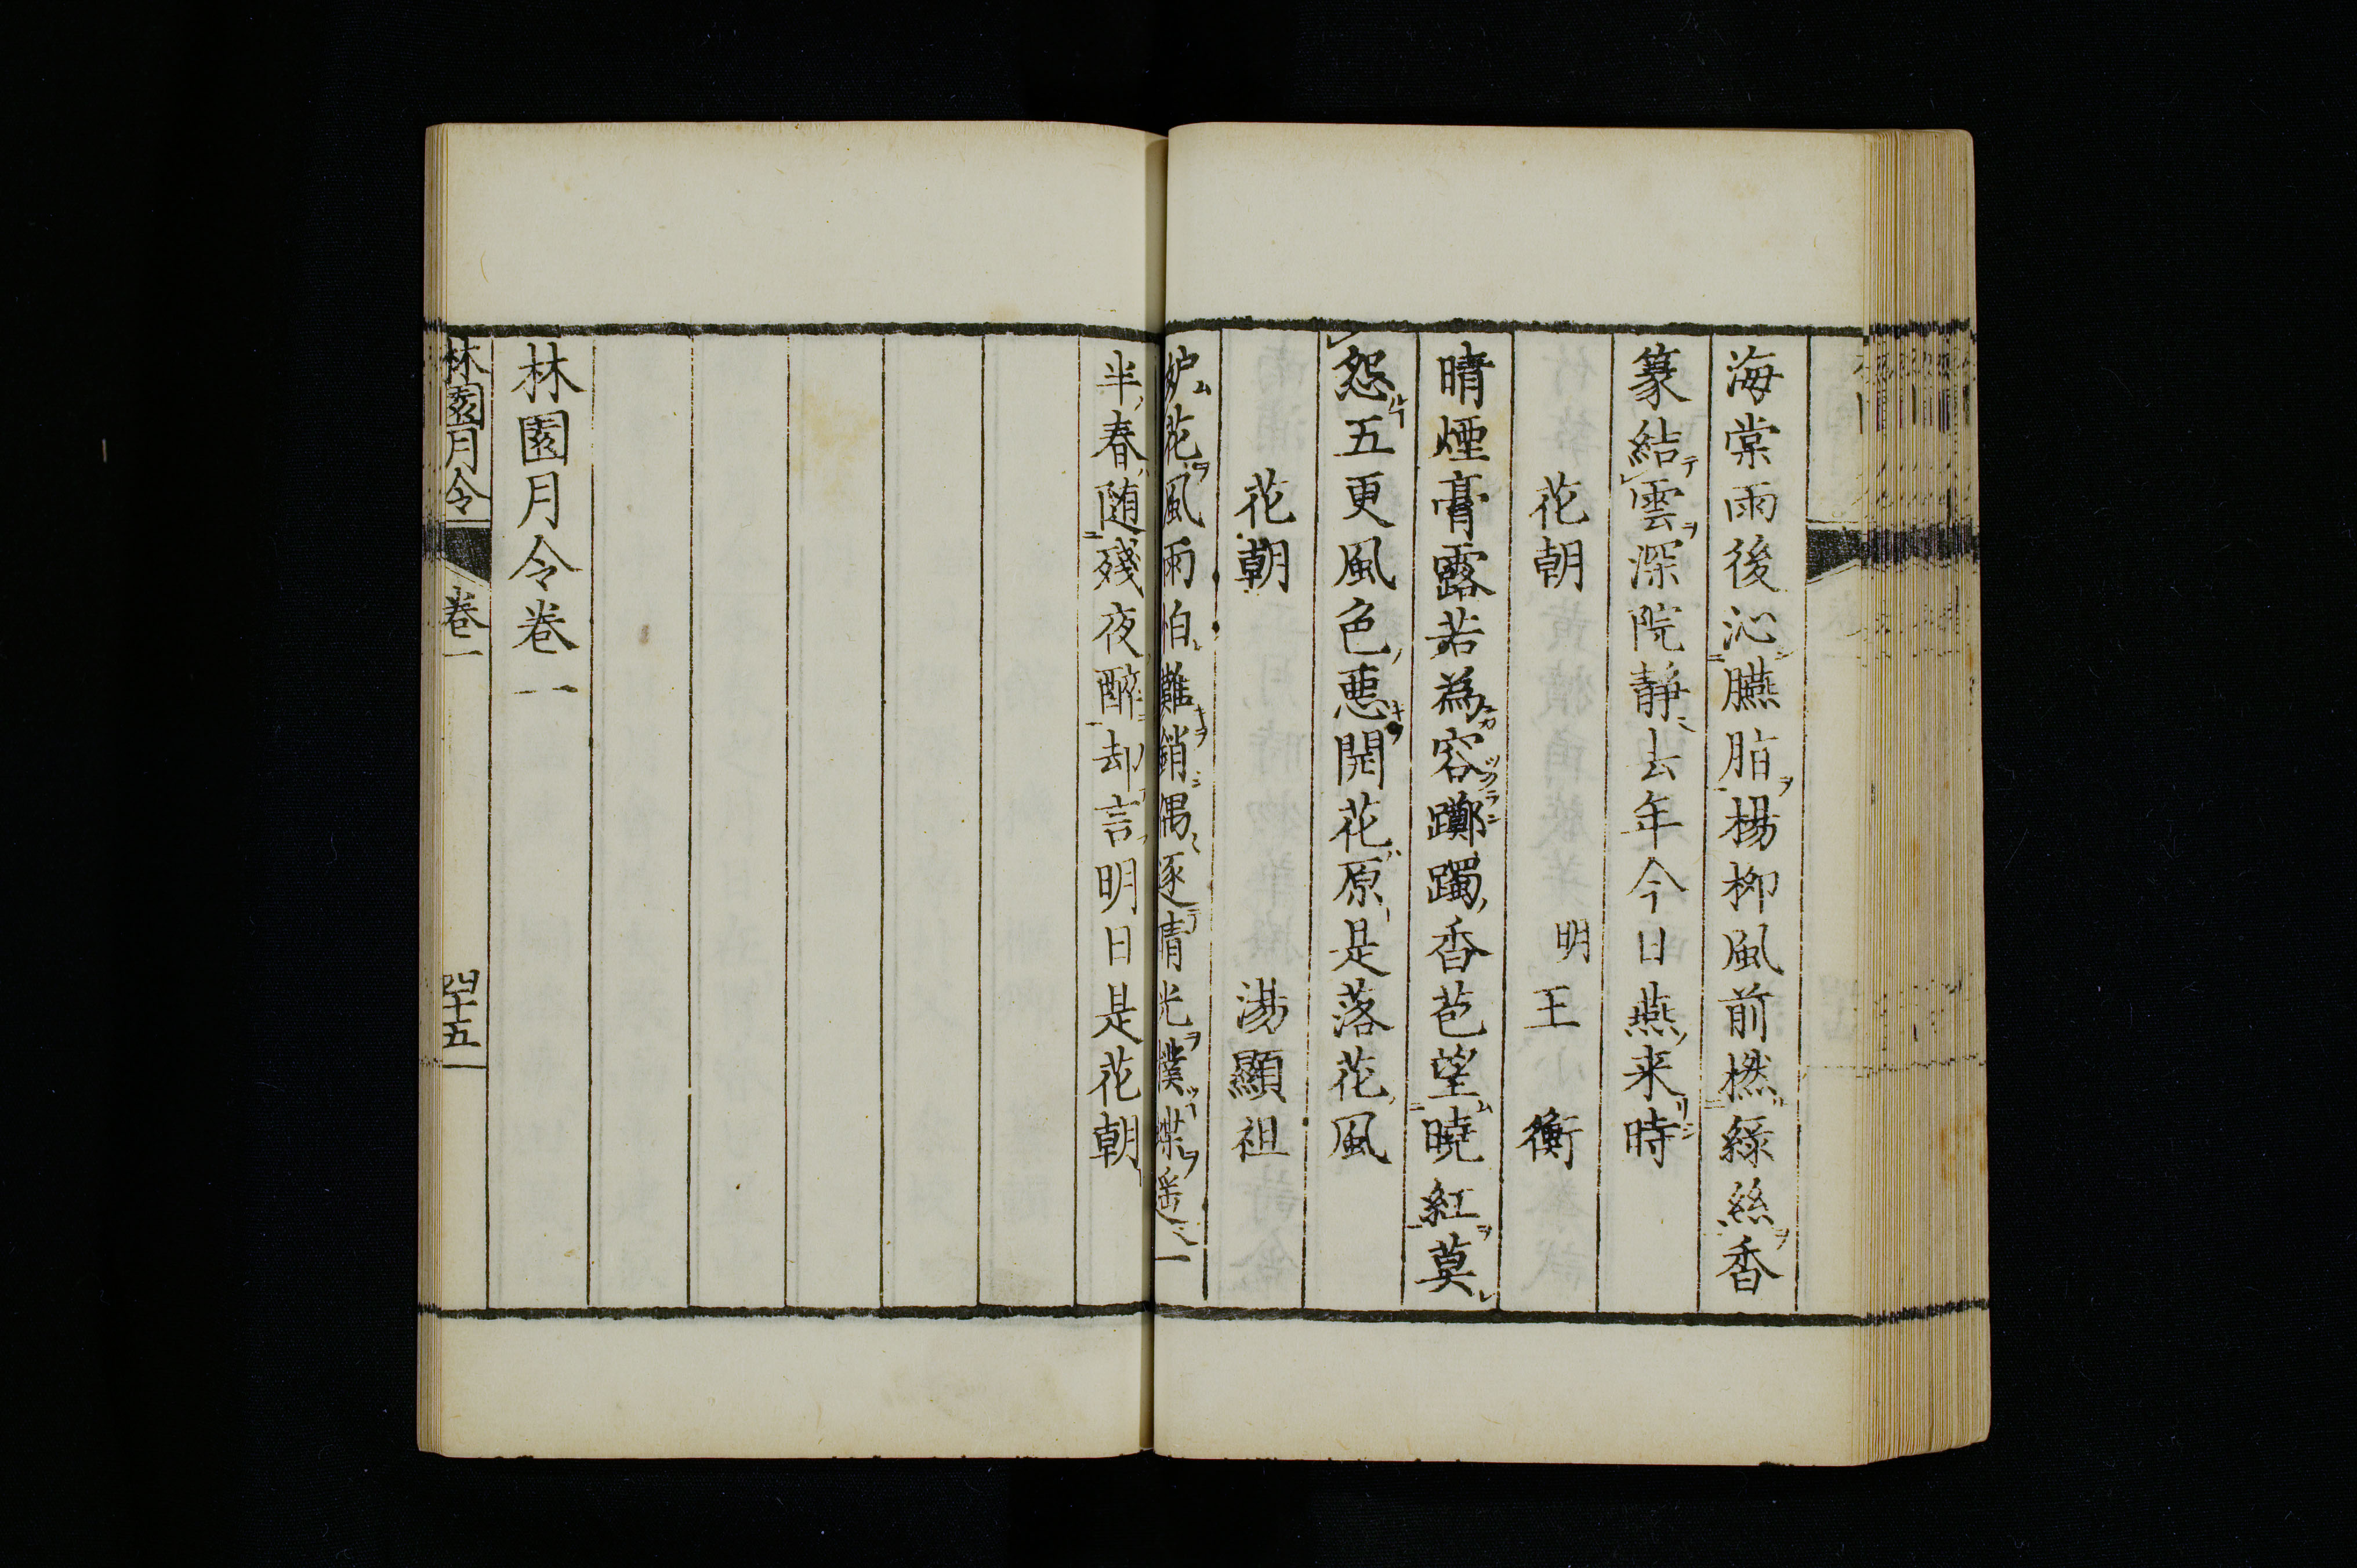 海棠雨後沁臙脂楊柳風前撚綠絲香
篆結雲深院靜去年今日燕来時
花朝 明 王 衡
晴煙膏露若為容躑躅香苞望曉紅莫
怨五更風色惡開花原是落花風
花朝 湯顯祖
妒花風雨怕難銷偶逐晴光撲蝶遥一
半春随殘夜醉却言明日是花朝
林園月令卷一
林園月令 卷一 四十五